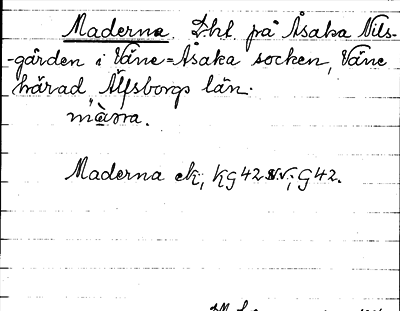 Maderna. Dhl. på Åsaka Nils-
-gården i Väne=Åsaka socken, Väne
härad Älfsborgs län.
Maderna ek, KG42 N.V., G42.